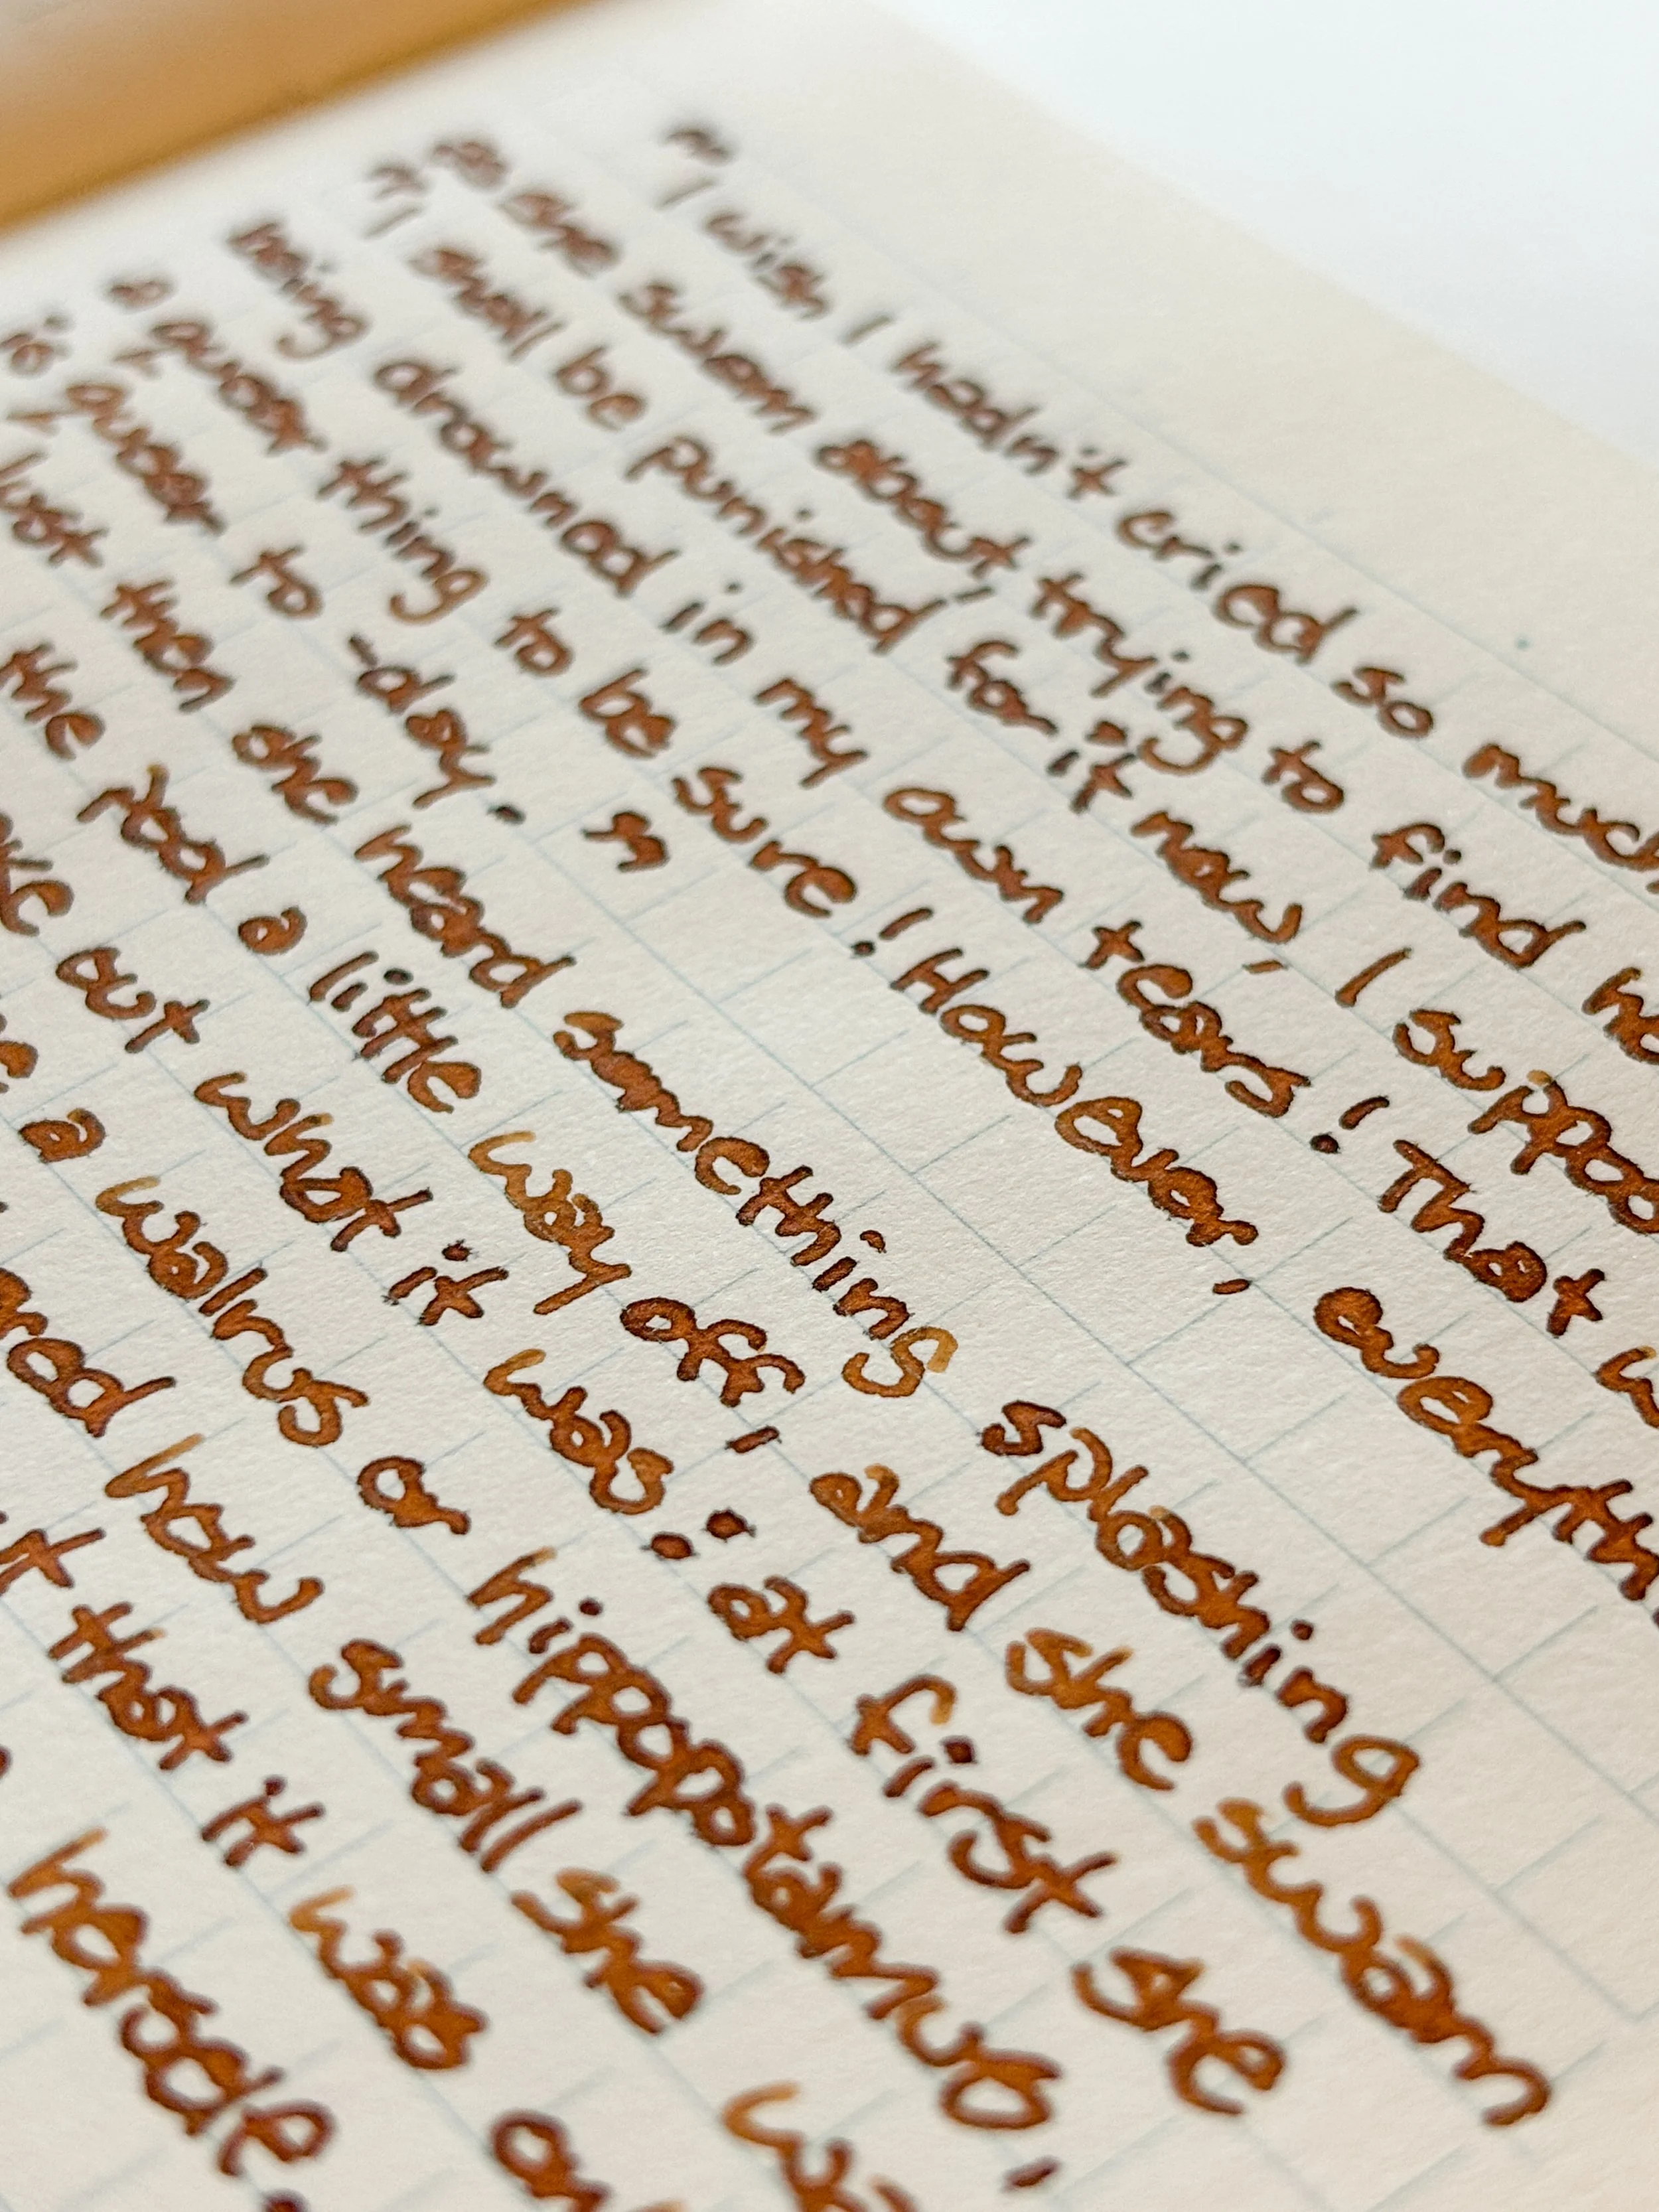 "I wish I hadn't cried so much
as she swam about, trying to find he
"I shall be punished for it now, I suppo
being drowned in my own tears! That w
a queer thing to be sure! However, everyth
is queer to-day."
Just then she heard something splashing
the pool a little way off, and she swam
out what it was: at first she
a walrus or hippopotamus,
how small she
that it was